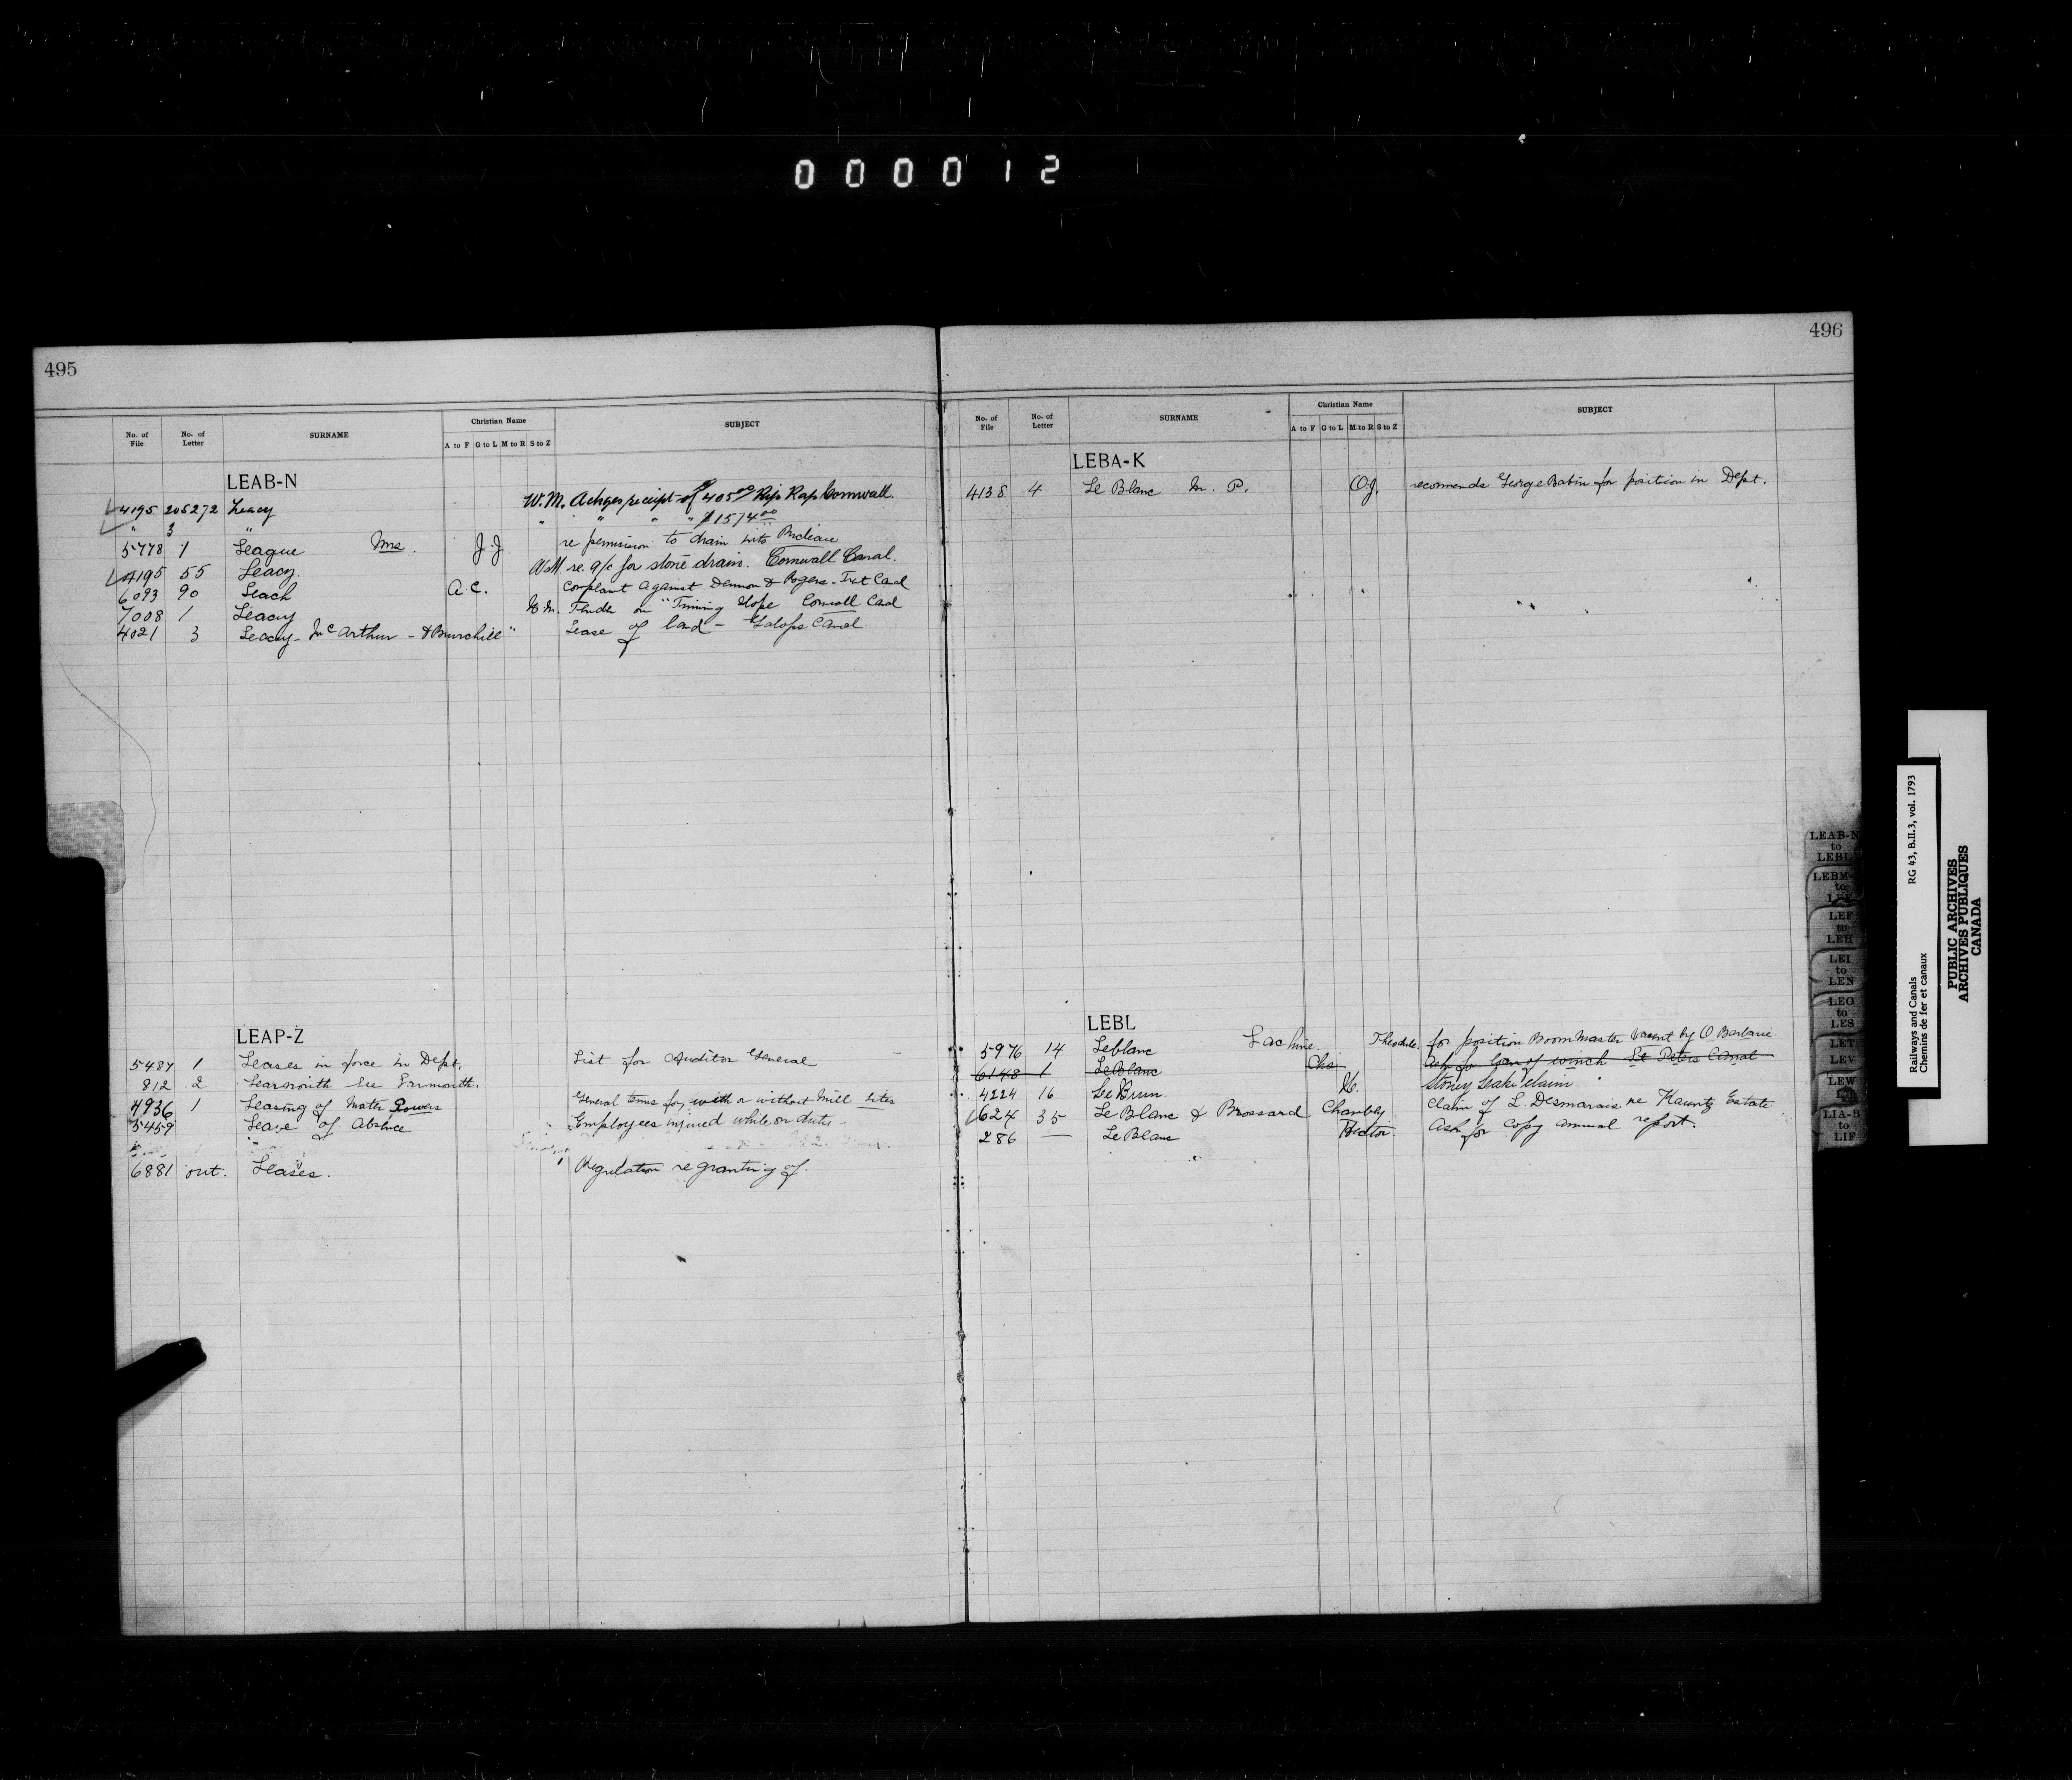 000012
495
No. of File No. of Letter SURNAME Christian Name A to F G to L M to R S to Z SUBJECT
LEAB-N
4195 205272 Leacy W. M. Ackges receipt of $405 00 Rip Rap Cornwall.
" 3 " " " " " " $1574 00
5778 1 League Mrs. J. J re permission to drain into Rideau
4195 55 Leacy. W M re. a/c for stone drain. Cornwall Canal.
6093 90 Leach A. C. Complaint against Dennon & Rogers - Trent Canal
7008 1 Leacy W. M. Tender on "Trimming Slope Cornwall Canal
4021 3 Leacy - McArthur - & Burchill" Lease of land - Galops Canal
LEAP-Z
5487 1 Leases in force in Dept. List for Auditor General
812 2 Learmonth See Larmonth.
4936 1 Leasing of Water Powers General terms for, with or without Mill Sites
5459 Leave of Absence Employees injured while on duty -
6881 out. Leases. Regulation re granting of.
496
No. of File No. of Letter SURNAME Christian Name A to F G to L M to R S to Z SUBJECT
LEBA-K
4138 4 Le Blanc M. P. O. J. recommends George Babin for position in Dept.
LEBL
5976 14 Leblanc Lachine. Theodule. for position Boom Master vacent by O. Barbarie
6148 1 LeBlanc Chas ask for loan of winch St Peters Canal
4224 16 Le Brun. Stoney Leake claim
624 35 Le Blanc & Brossard Chambly. Claim of L. Desmarais re Kauntz Estate
286 — Le Blanc Hector. Ask for copy annual report.
LEAB-N to LEBL
LEBM-
LEF to LEH
LEI to LEN
LEO to LES
LET
LEV
LEW
LIA-B to LIF
Railways and Canals RG 43, B.II.3, vol. 1793
Chemins de fer et canaux
PUBLIC ARCHIVES
ARCHIVES PUBLIQUES
CANADA